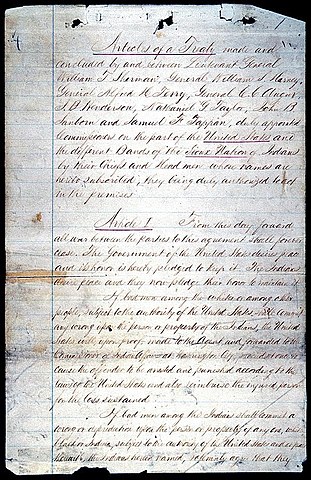 Articles of a Treaty made and
concluded by and between Lieutenant General
William T. Sherman, General William S. Harney,
General Alfred H. Terry, General C. C. Augur,
J. B. Henderson, Nathaniel G. Taylor, John B.
Sanborn and Samuel F. Tappan, duly appointed
Commissioners on the part of the United States and
the different Bands of the Sioux Nation of Indians
by their Chiefs and Head men whose names are
hereto subscribed, they being duly authorized to act
in the premises.
Article I. From this day forward
all war between the parties to this agreement shall forever
cease. The Government of the United States desires peace
and its honor is hereby pledged to keep it. The Indians
desire peace and they now pledge their honor to maintain it.
If bad men among the whites or among other
people, subject to the authority of the United States shall commit
any wrong upon the person or property of the Indians, the United
States will, upon proof made to the Agent and forwarded to the
Commissioner of Indian Affairs at Washington City, proceed at once to
cause the offender to be arrested and punished according to the
laws of the United States and also reimburse the injured person
for the loss sustained.
If bad men among the Indians shall commit a
wrong or depredation upon the person or property of any one, white
black or Indian, subject to the authority of the United States and at peace
the Indians herein named, solemnly agree that they